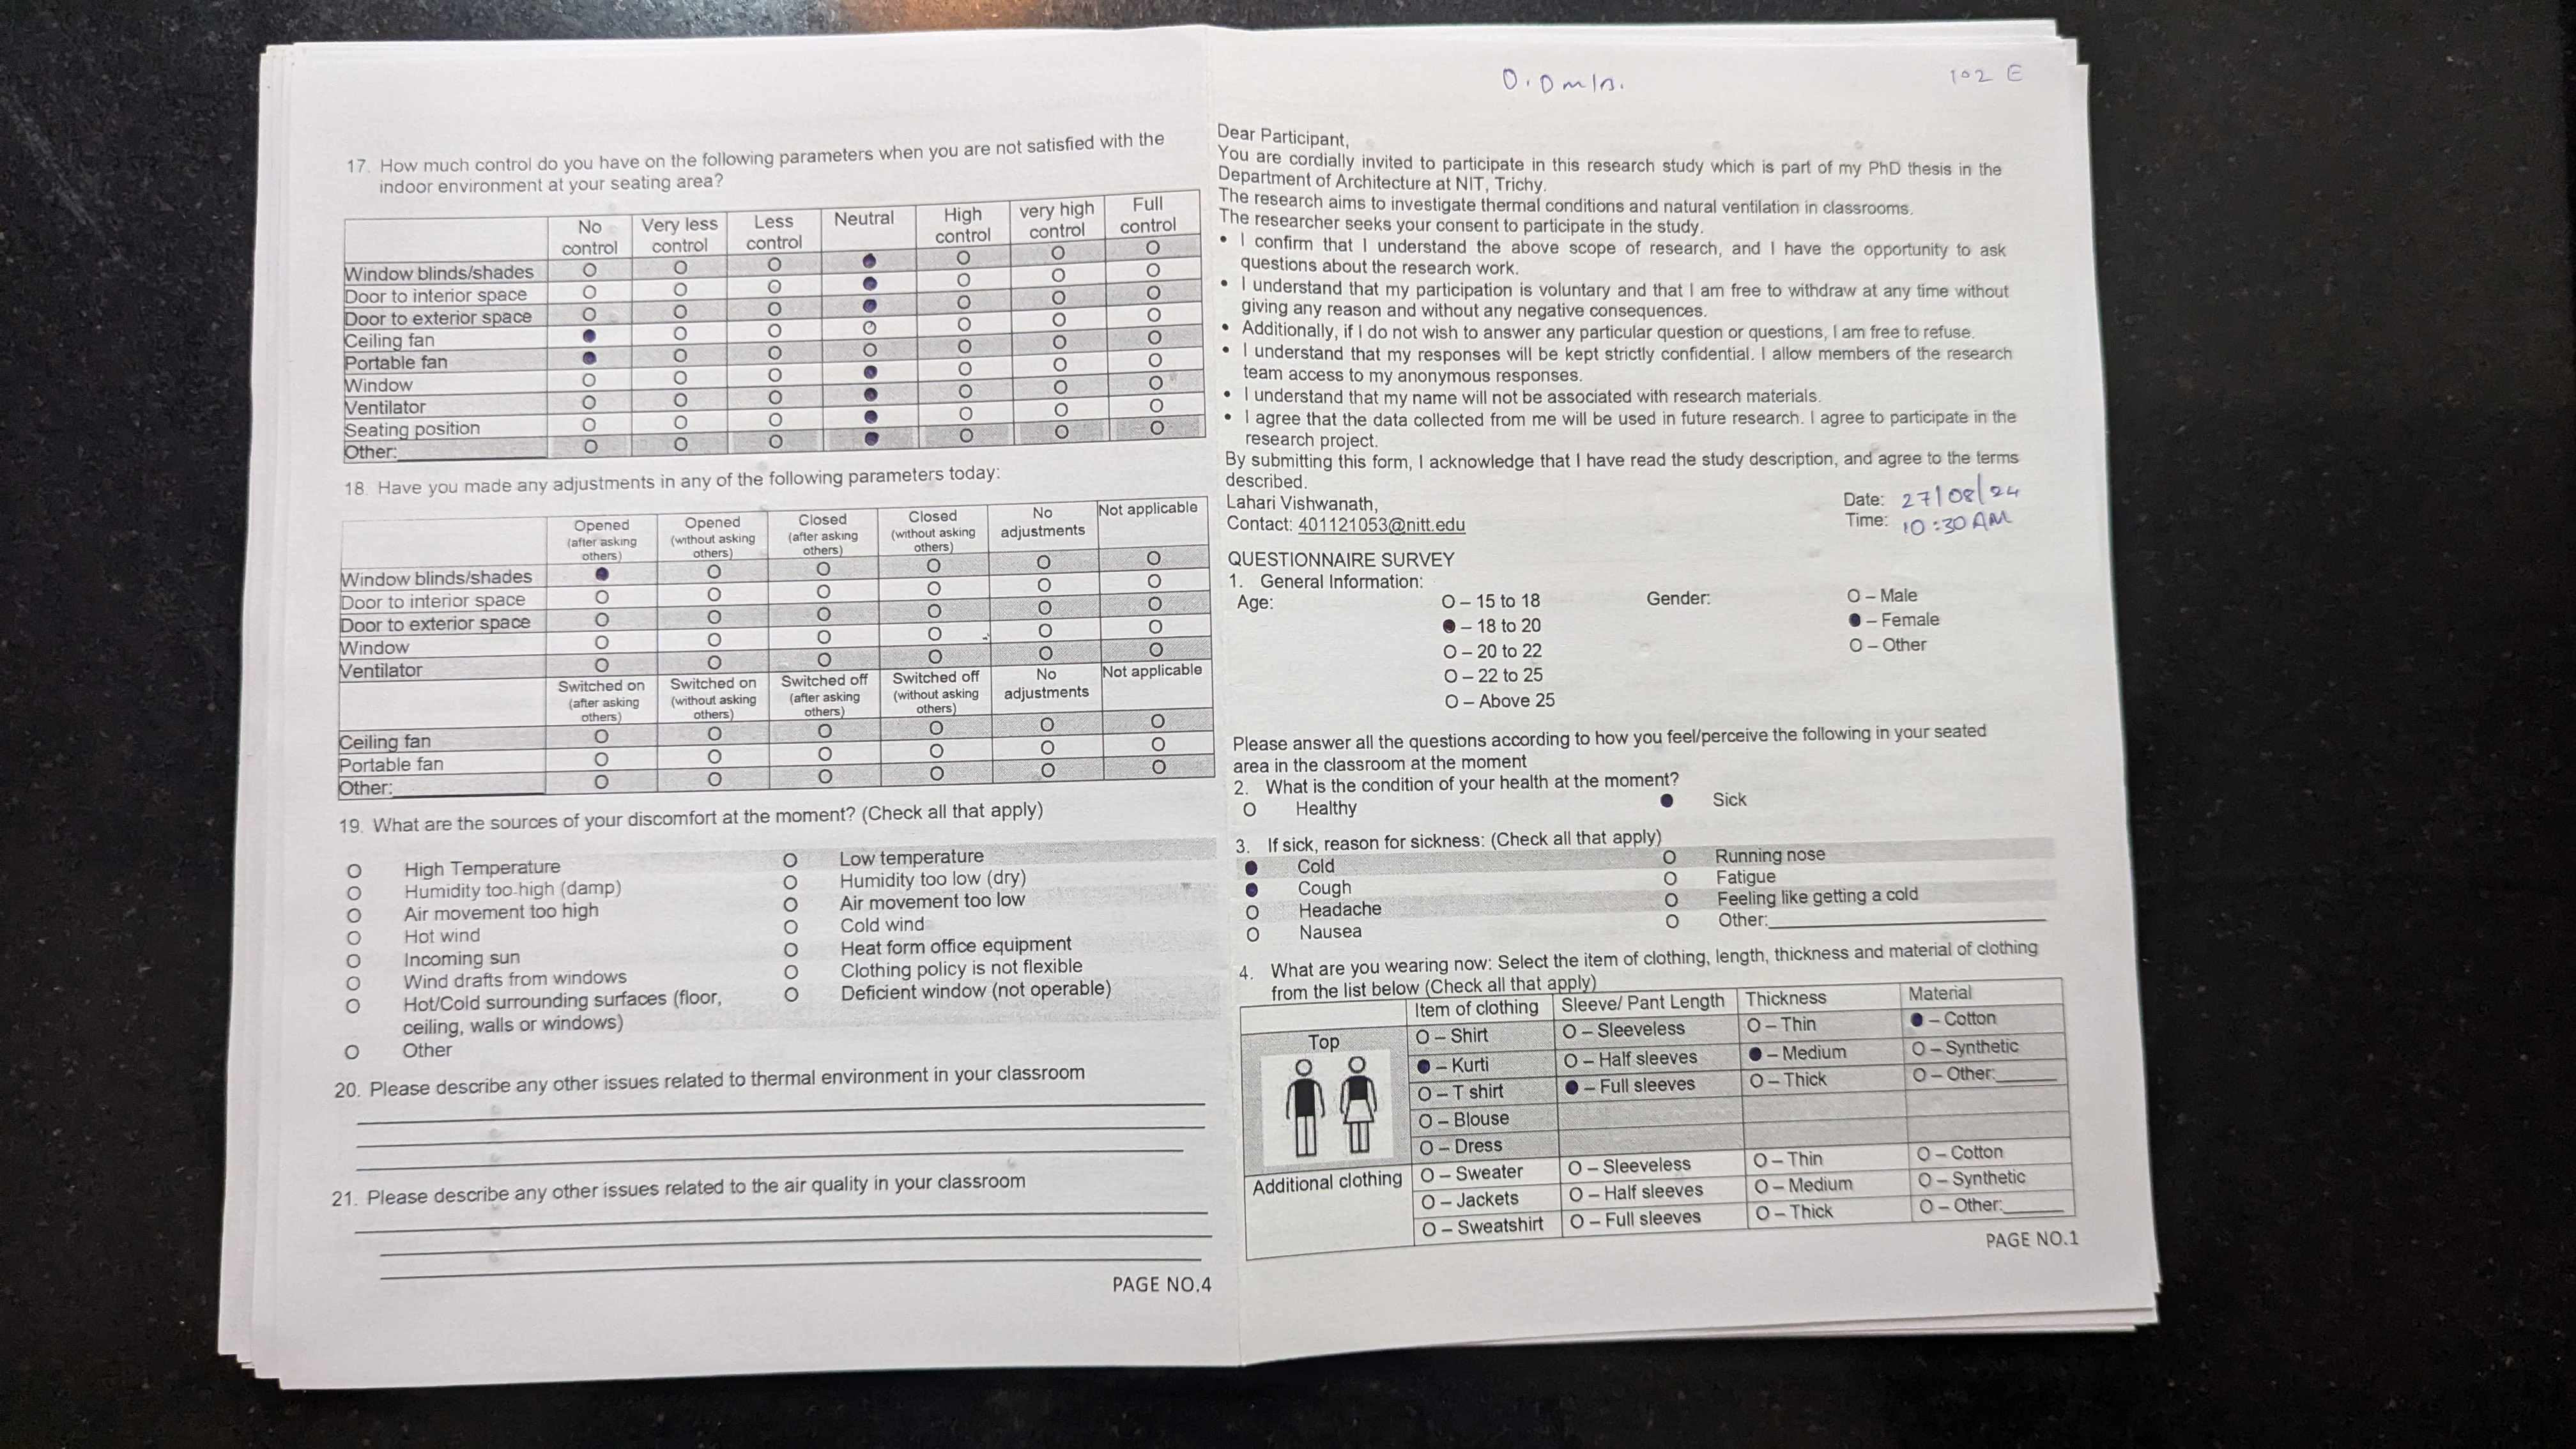 17. How much control do you have on the following parameters when you are not satisfied with the
indoor environment at your seating area?
No control Very less control Less control Neutral High control very high control Full control
Window blinds/shades O O O ● O O O
Door to interior space O O O ● O O O
Door to exterior space O O O ● O O O
Ceiling fan ● O O O O O O
Portable fan ● O O O O O O
Window O O O ● O O O
Ventilator O O O ● O O O
Seating position O O O ● O O O
Other:__________ O O O ● O O O
18. Have you made any adjustments in any of the following parameters today:
Opened (after asking others) Opened (without asking others) Closed (after asking others) Closed (without asking others) No adjustments Not applicable
Window blinds/shades ● O O O O O
Door to interior space O O O O O O
Door to exterior space O O O O O O
Window O O O O O O
Ventilator O O O O O O
Switched on (after asking others) Switched on (without asking others) Switched off (after asking others) Switched off (without asking others) No adjustments Not applicable
Ceiling fan O O O O O O
Portable fan O O O O O O
Other:__________ O O O O O O
19. What are the sources of your discomfort at the moment? (Check all that apply)
O High Temperature O Low temperature
O Humidity too high (damp) O Humidity too low (dry)
O Air movement too high O Air movement too low
O Hot wind O Cold wind
O Incoming sun O Heat form office equipment
O Wind drafts from windows O Clothing policy is not flexible
O Hot/Cold surrounding surfaces (floor, O Deficient window (not operable)
ceiling, walls or windows)
O Other
20. Please describe any other issues related to thermal environment in your classroom
21. Please describe any other issues related to the air quality in your classroom
PAGE NO.4
0.0 m/s. 102 E
Dear Participant,
You are cordially invited to participate in this research study which is part of my PhD thesis in the
Department of Architecture at NIT, Trichy.
The research aims to investigate thermal conditions and natural ventilation in classrooms.
The researcher seeks your consent to participate in the study.
• I confirm that I understand the above scope of research, and I have the opportunity to ask
questions about the research work.
• I understand that my participation is voluntary and that I am free to withdraw at any time without
giving any reason and without any negative consequences.
• Additionally, if I do not wish to answer any particular question or questions, I am free to refuse.
• I understand that my responses will be kept strictly confidential. I allow members of the research
team access to my anonymous responses.
• I understand that my name will not be associated with research materials.
• I agree that the data collected from me will be used in future research. I agree to participate in the
research project.
By submitting this form, I acknowledge that I have read the study description, and agree to the terms
described.
Lahari Vishwanath, Date: 27/08/24
Contact: 401121053@nitt.edu Time: 10:30 AM
QUESTIONNAIRE SURVEY
1. General Information:
Age: O – 15 to 18 Gender: O – Male
● – 18 to 20 ● – Female
O – 20 to 22 O – Other
O – 22 to 25
O – Above 25
Please answer all the questions according to how you feel/perceive the following in your seated
area in the classroom at the moment
2. What is the condition of your health at the moment?
O Healthy ● Sick
3. If sick, reason for sickness: (Check all that apply)
● Cold O Running nose
● Cough O Fatigue
O Headache O Feeling like getting a cold
O Nausea O Other:__________
4. What are you wearing now: Select the item of clothing, length, thickness and material of clothing
from the list below (Check all that apply)
Item of clothing Sleeve/ Pant Length Thickness Material
Top O – Shirt O – Sleeveless O – Thin ● – Cotton
● – Kurti O – Half sleeves ● – Medium O – Synthetic
O – T shirt ● – Full sleeves O – Thick O – Other:______
O – Blouse
O – Dress
Additional clothing O – Sweater O – Sleeveless O – Thin O – Cotton
O – Jackets O – Half sleeves O – Medium O – Synthetic
O – Sweatshirt O – Full sleeves O – Thick O – Other:______
PAGE NO.1